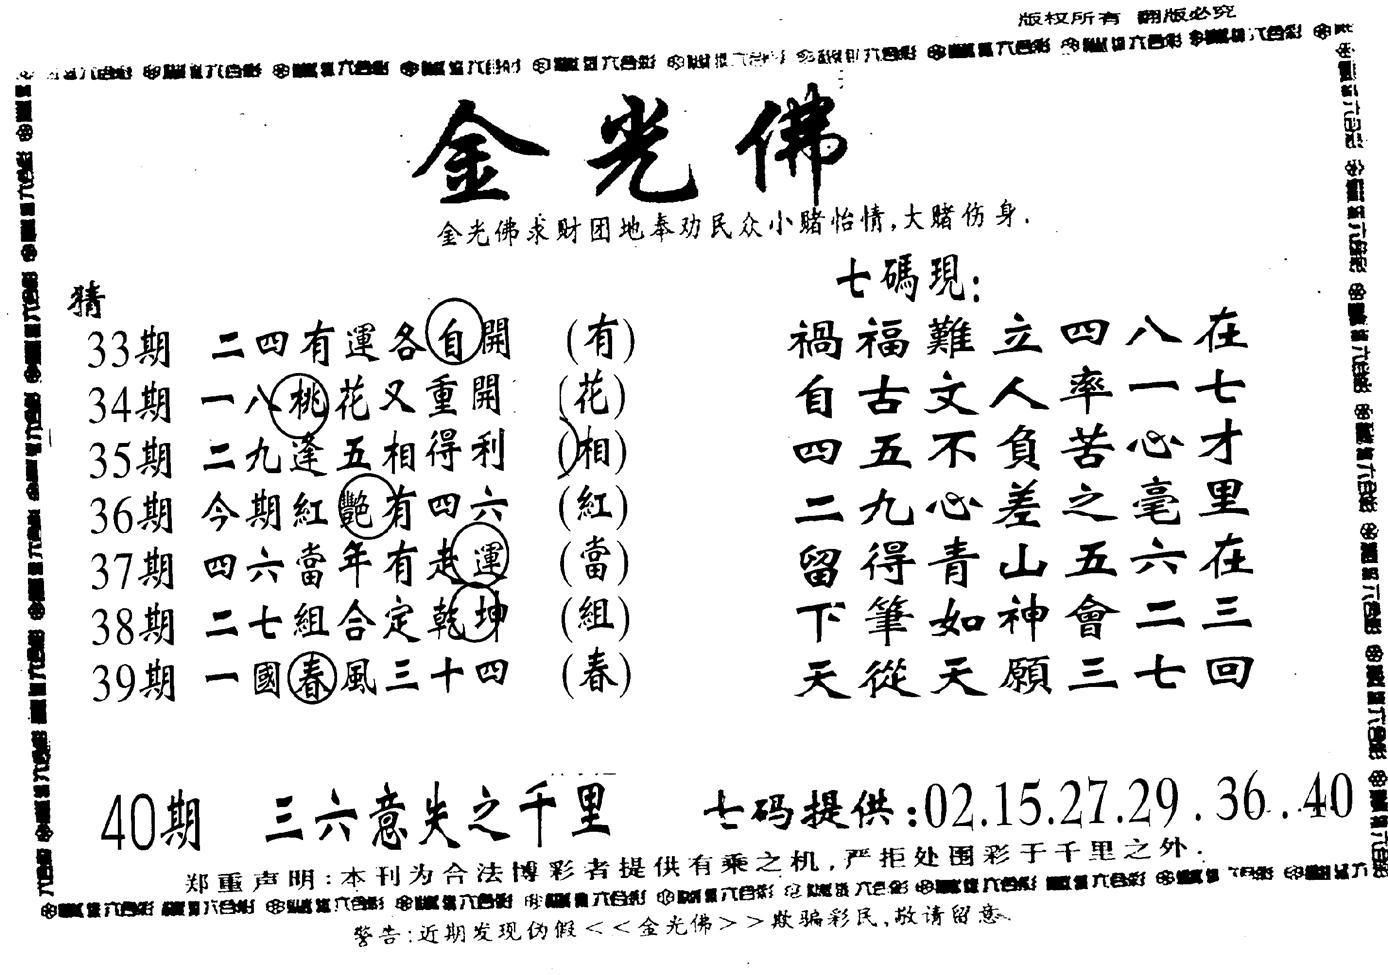 版权所有 翻版必究
金光佛
金光佛求财团地奉劝民众小赌怡情,大赌伤身.
七碼現:
猜
33期 二四有運各自開 (有) 禍福難立四八在
34期 一八桃花又重開 (花) 自古文人率一七
35期 二九逢五相得利 (相) 四五不負苦心才
36期 今期紅艷有四六 (紅) 二九心差之毫里
37期 四六當年有走運 (當) 留得青山五六在
38期 二七組合定乾坤 (組) 下筆如神會二三
39期 一國春風三十四 (春) 天從天願三七回
40期 三六意失之千里 七码提供:02.15.27.29.36..40
郑重声明:本刊为合法博彩者提供有乘之机,严拒处围彩于千里之外.
警告:近期发现伪假<<金光佛>>欺骗彩民,敬请留意.